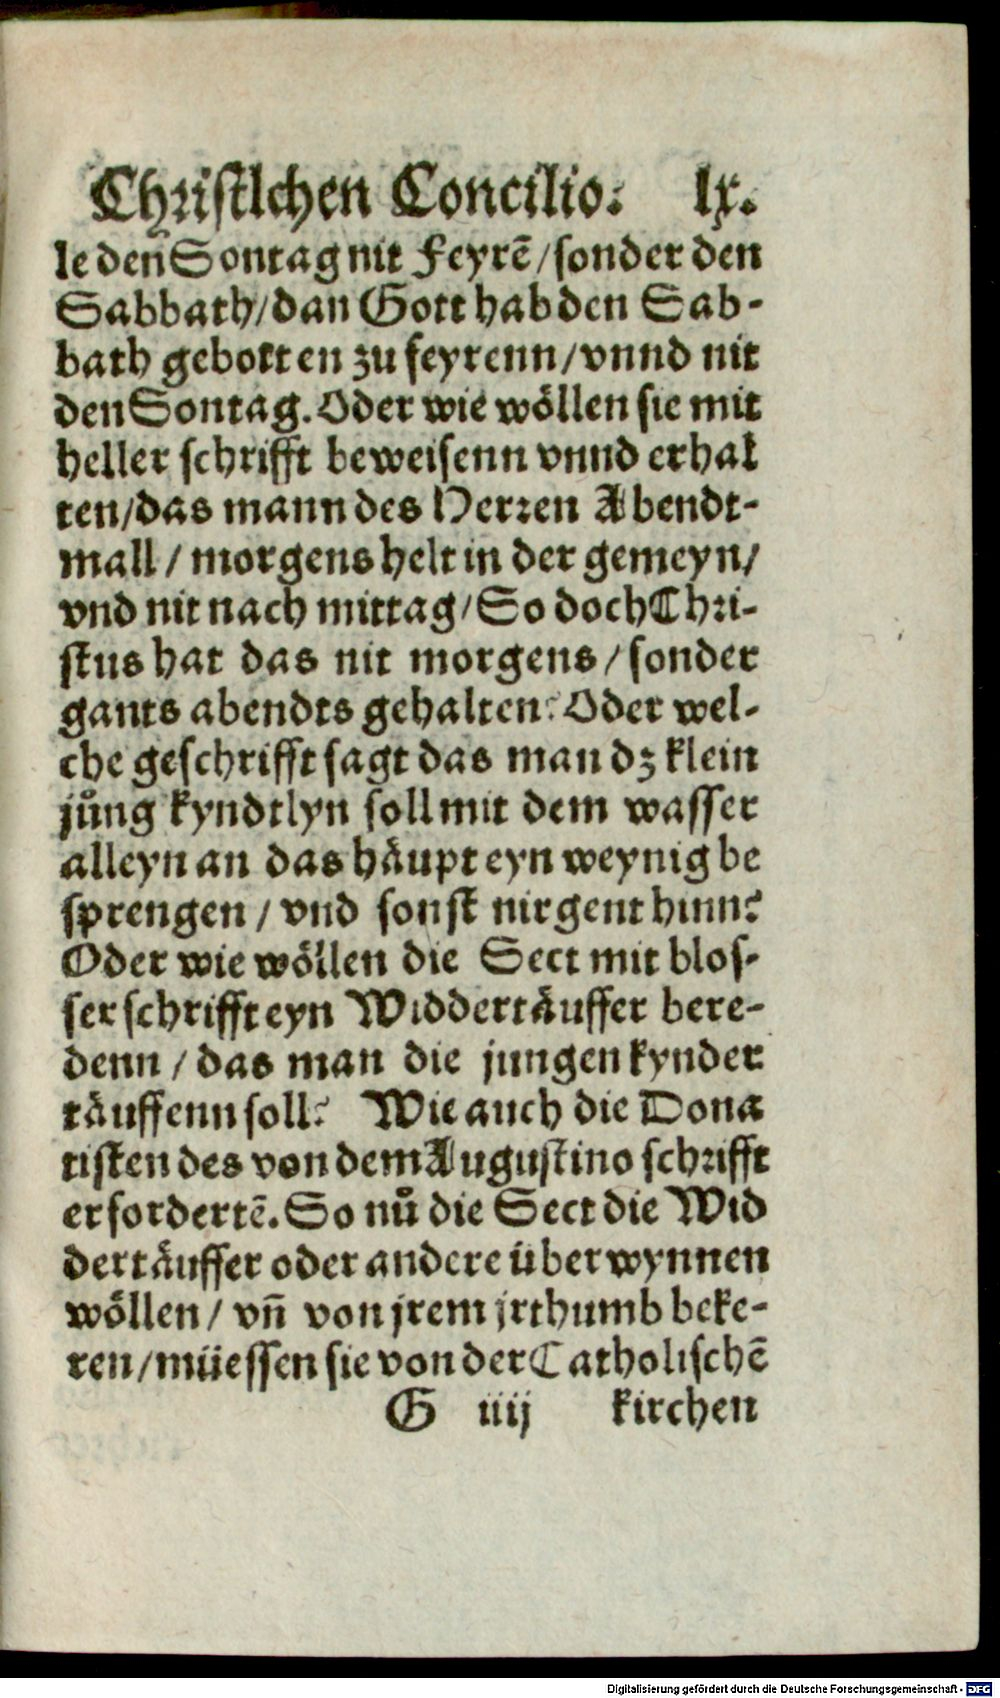 Christlchen Concilio. lx.
le den Sontag nit Feyrē/sonder den
Sabbath/dan Gott hab den Sab-
bath gebotten zu feyrenn/vnnd nit
den Sontag. Oder wie wöllen sie mit
heller schrifft beweisenn vnnd erhal
ten/das mann des Herren Abendt-
mall/morgens helt in der gemeyn/
vnd nit nach mittag/So doch Chri-
stus hat das nit morgens/sonder
gants abendts gehalten? Oder wel-
che geschrifft sagt das man dz klein
jůng kyndtlyn soll mit dem wasser
alleyn an das häupt eyn weynig be
sprengen/vnd sonst nirgent hinn?
Oder wie wöllen die Sect mit blos-
ser schrifft eyn Widdertäuffer bere-
denn/das man die jungen kynder
täuffenn soll? Wie auch die Dona
tisten des von dem Augustino schrifft
erfordertē. So nů die Sect die Wid
dertäuffer oder andere überwynnen
wöllen/vñ von jrem jrthumb beke-
ren/müessen sie von der Catholischē
G iiij kirchen
Digitalisierung gefördert durch die Deutsche Forschungsgemeinschaft - DFG